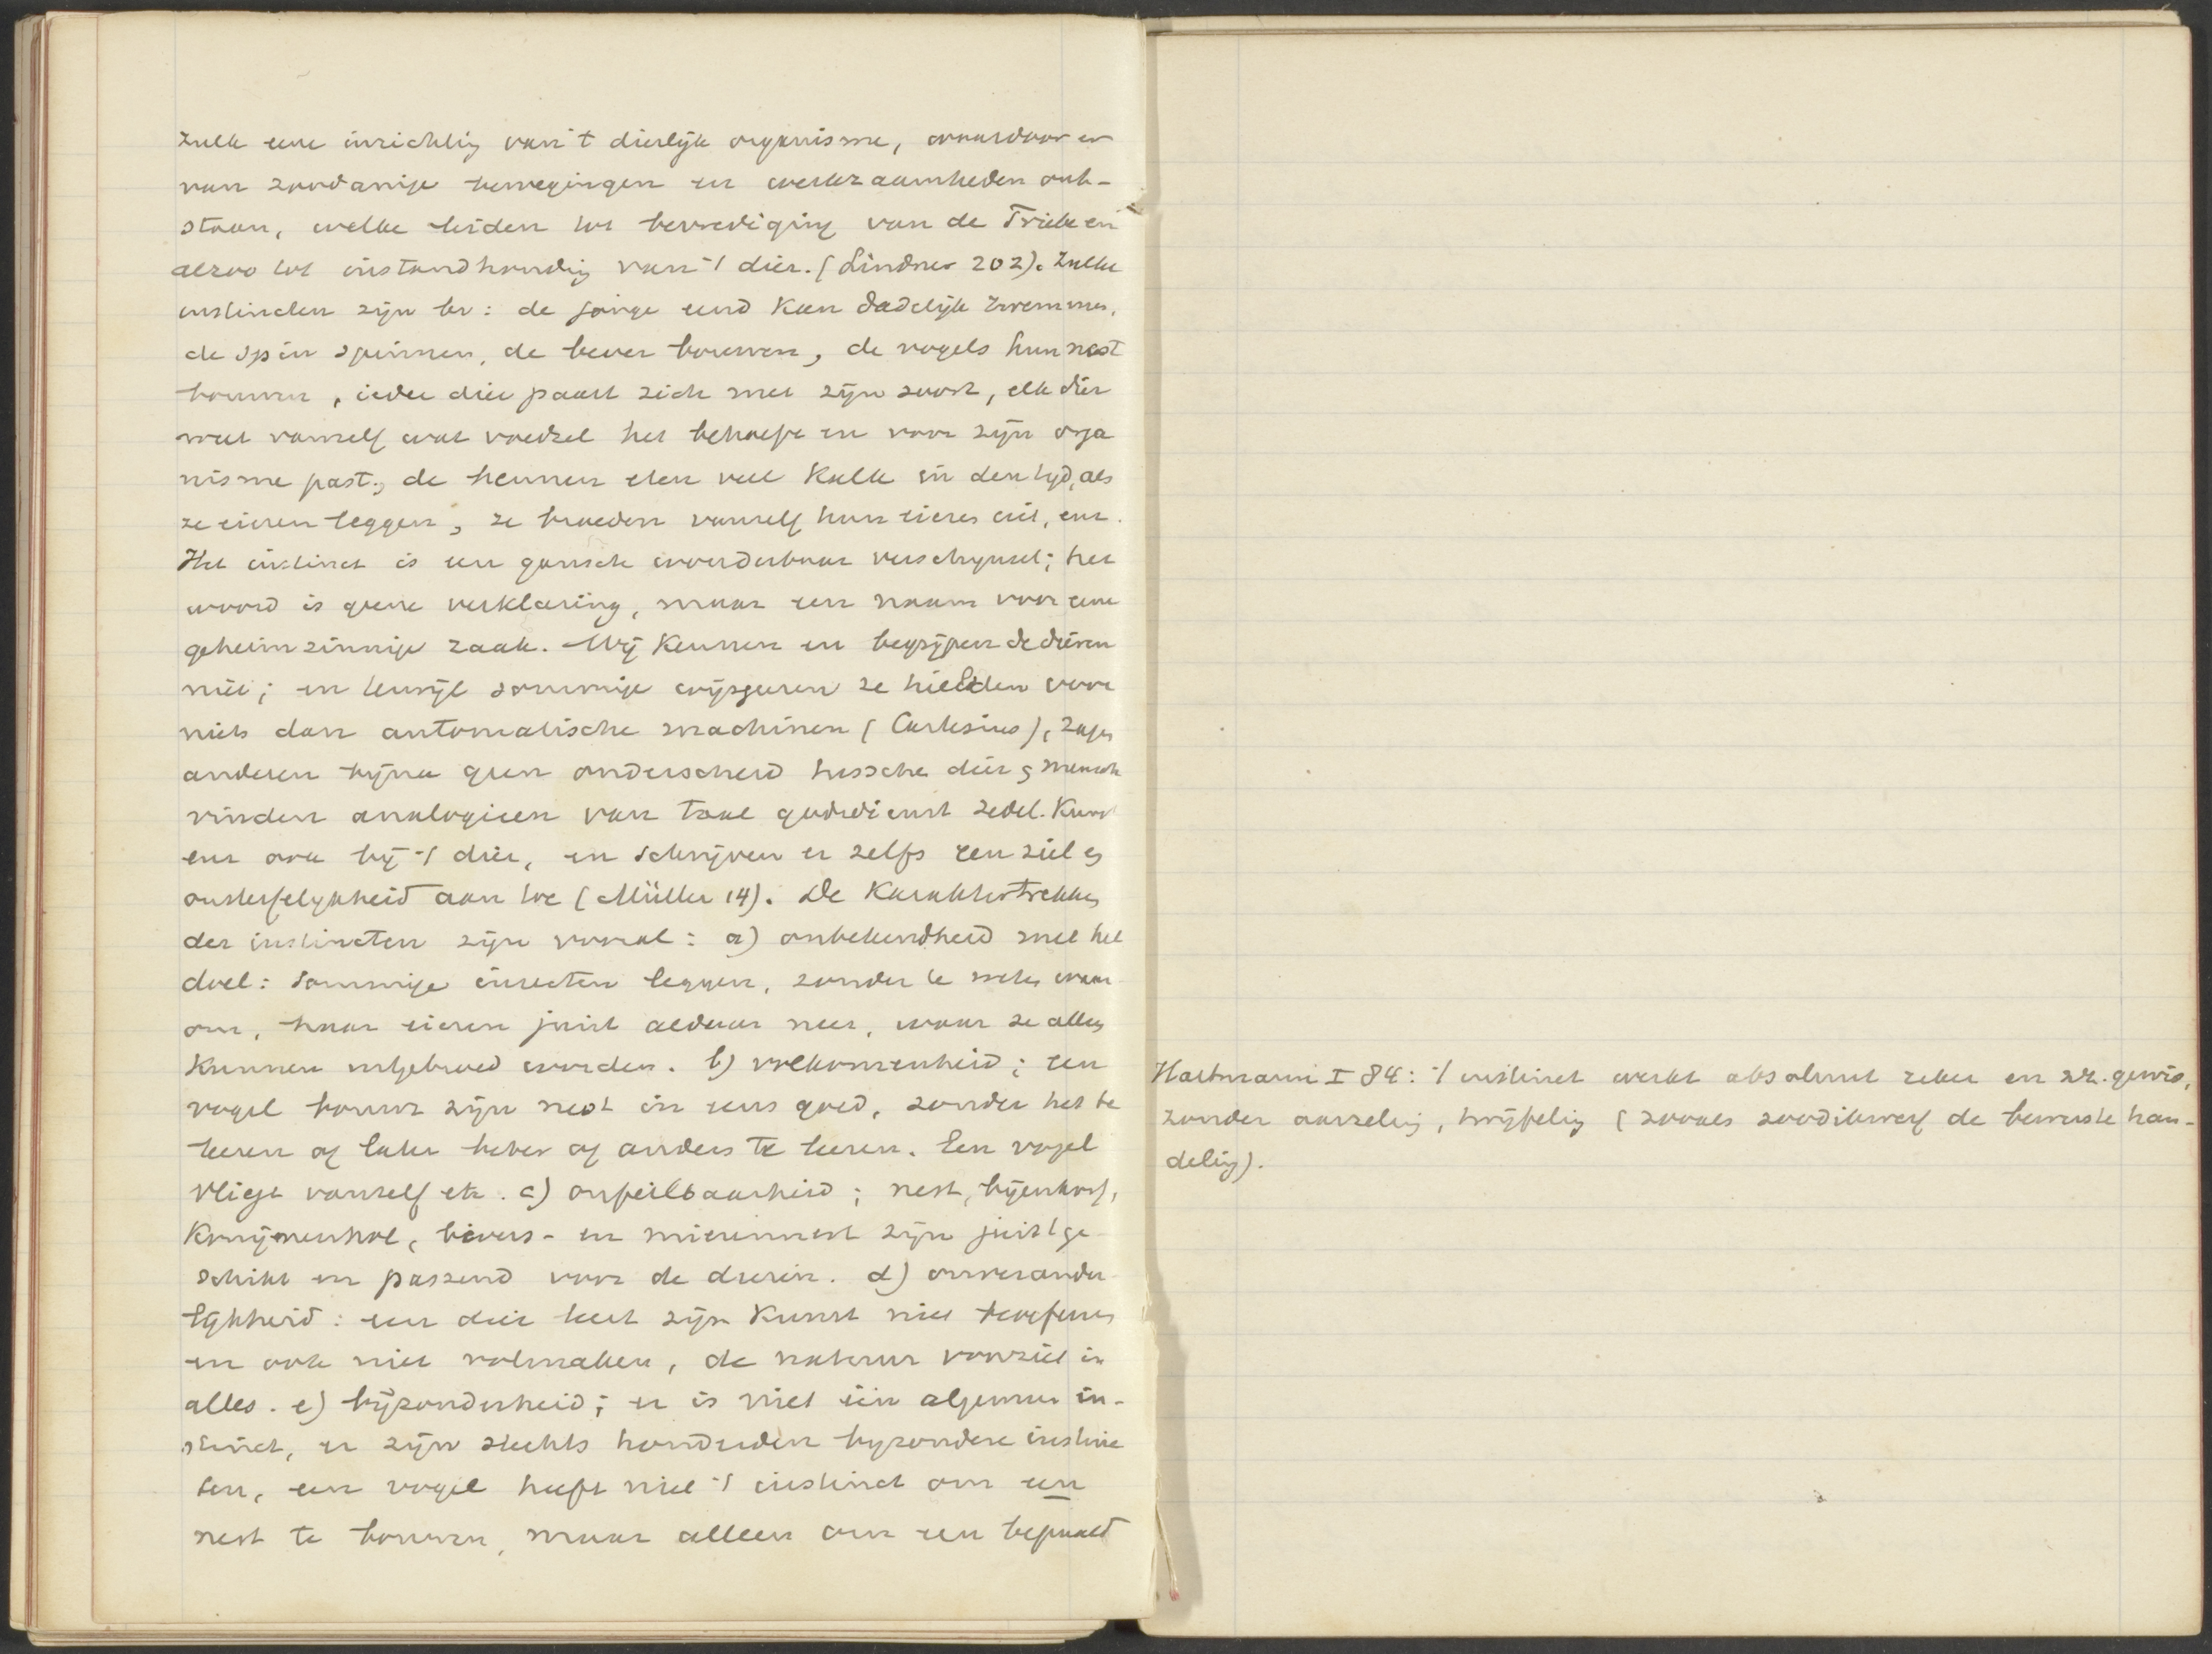 zulk eene inrichting van 't dierlijk organisme, waardoor er
van zoodanige bewegingen en werkzaamheden ont-
staan, welke leiden tot bevrediging van de Triebe en
alzoo tot instandhouding van 't dier. (Lindner 202). Zulke
instincten zijn bv: de jonge eend kan dadelijk zwemmen,
de spin spinnen, de bever bouwen, de vogels hun nest
bouwen, ieder dier paart zich met zijn soort, elk dier
weet vanzelf wat voedsel het behoeft en voor zijn orga
nisme past; de hennen eten veel kalk in den tijd, als
ze eieren leggen, ze broeden vanzelf hun eieren uit, enz.
Het instinct is een gansch wonderbaar verschijnsel; het
woord is geene verklaring, maar een naam voor eene
geheimzinnige zaak. Wij kennen en begrijpen de dieren
niet; en terwijl sommige wijsgeeren ze hielden voor
niets dan automatische machinen (Cartesius), zagen
anderen bijna geen onderscheid tussche dier en mensch
vinden analogieen van taal godsdienst zedel. Kunst
enz ook bij 't dier, en schrijven er zelfs een ziel en
onsterfelijkheid aan toe (Müller 14). De Karaktertrekken
der instincten zijn vooral: a) onbekendheid met het
doel: sommige insecten leggen, zonder te weten waar
om, haar eieren juist aldaar neer, waar ze alleen
kunnen uitgebroed worden. b) volkomenheid; een
vogel bouwt zijn nest in eens goed, zonder het te
leeren of later beter of anders te leeren. Een vogel
vliegt vanzelf etc. c) onfeilbaarheid; nest, bijenkorf,
Konijnenhol, bevers- en mierennest zijn juist ge
schikt en passend voor de dieren. d) onverander
lijkheid: een dier leert zijn Kunst niet beoefenen
en ook niet volmaken, de natuur voorziet in
alles. e) bijzonderheid; er is niet één algemeen in-
stinct, er zijn slechts honderden byzondere instinc
ten, een vogel heeft niet 't instinct om een
nest te bouwen, maar alleen om een bepaald
Hartmann I 84: 't instinct werkt absoluut zeker en zr. gewis,
zonder aarzeling, twijfeling (zooals zoodikwerf de bewuste han-
deling).